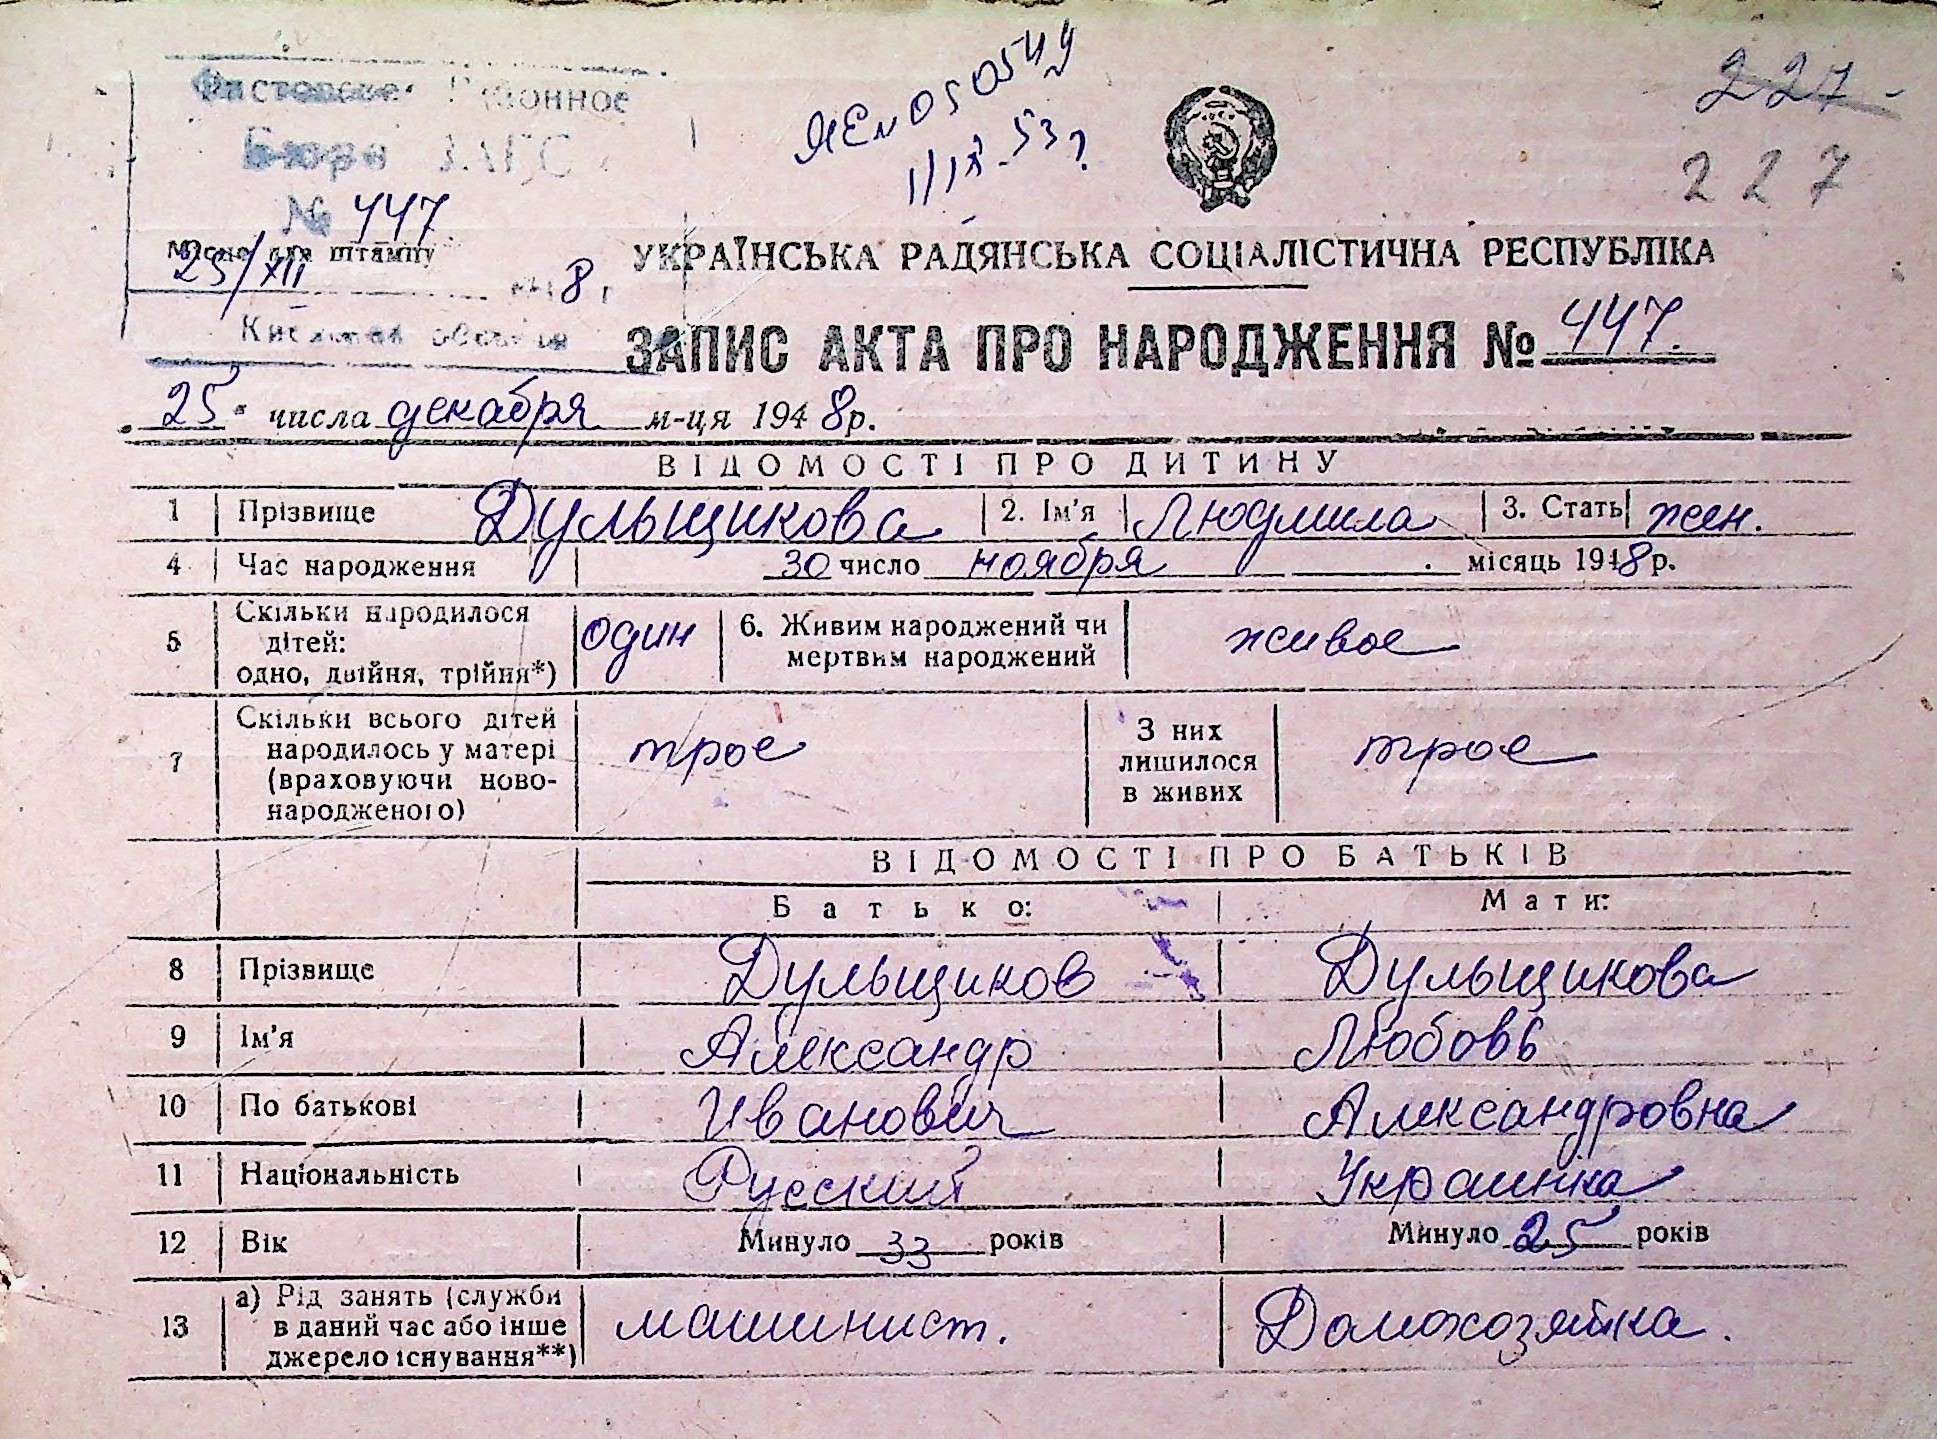 Районное
Бюро ЗАГС
№ 447
Місце для штампу
25/XII 8 г
Киевская область
227
227
УКРАЇНСЬКА РАДЯНСЬКА СОЦІАЛІСТИЧНА РЕСПУБЛІКА
ЗАПИС АКТА ПРО НАРОДЖЕННЯ № 447.
25 числа декабря м-ця 1948р.
ВІДОМОСТІ ПРО ДИТИНУ
1 Прізвище Дульщикова 2. Ім'я Людмила 3. Стать жен.
4 Час народження 30 число ноября місяць 1948р.
5 Скільки народилося дітей: одно, двійня, трійня*) один 6. Живим народжений чи мертвим народжений живое
7 Скільки всього дітей народилось у матері (враховуючи ново-народженого) трое З них лишилося в живих трое
ВІДОМОСТІ ПРО БАТЬКІВ
Батько: Мати:
8 Прізвище Дульщиков Дульщикова
9 Ім'я Александр Любовь
10 По батькові Иванович Александровна
11 Національність Русский Украинка
12 Вік Минуло 33 років Минуло 25 років
13 а) Рід занять (служби в даний час або інше джерело існування**) машинист. Домохозяйка.